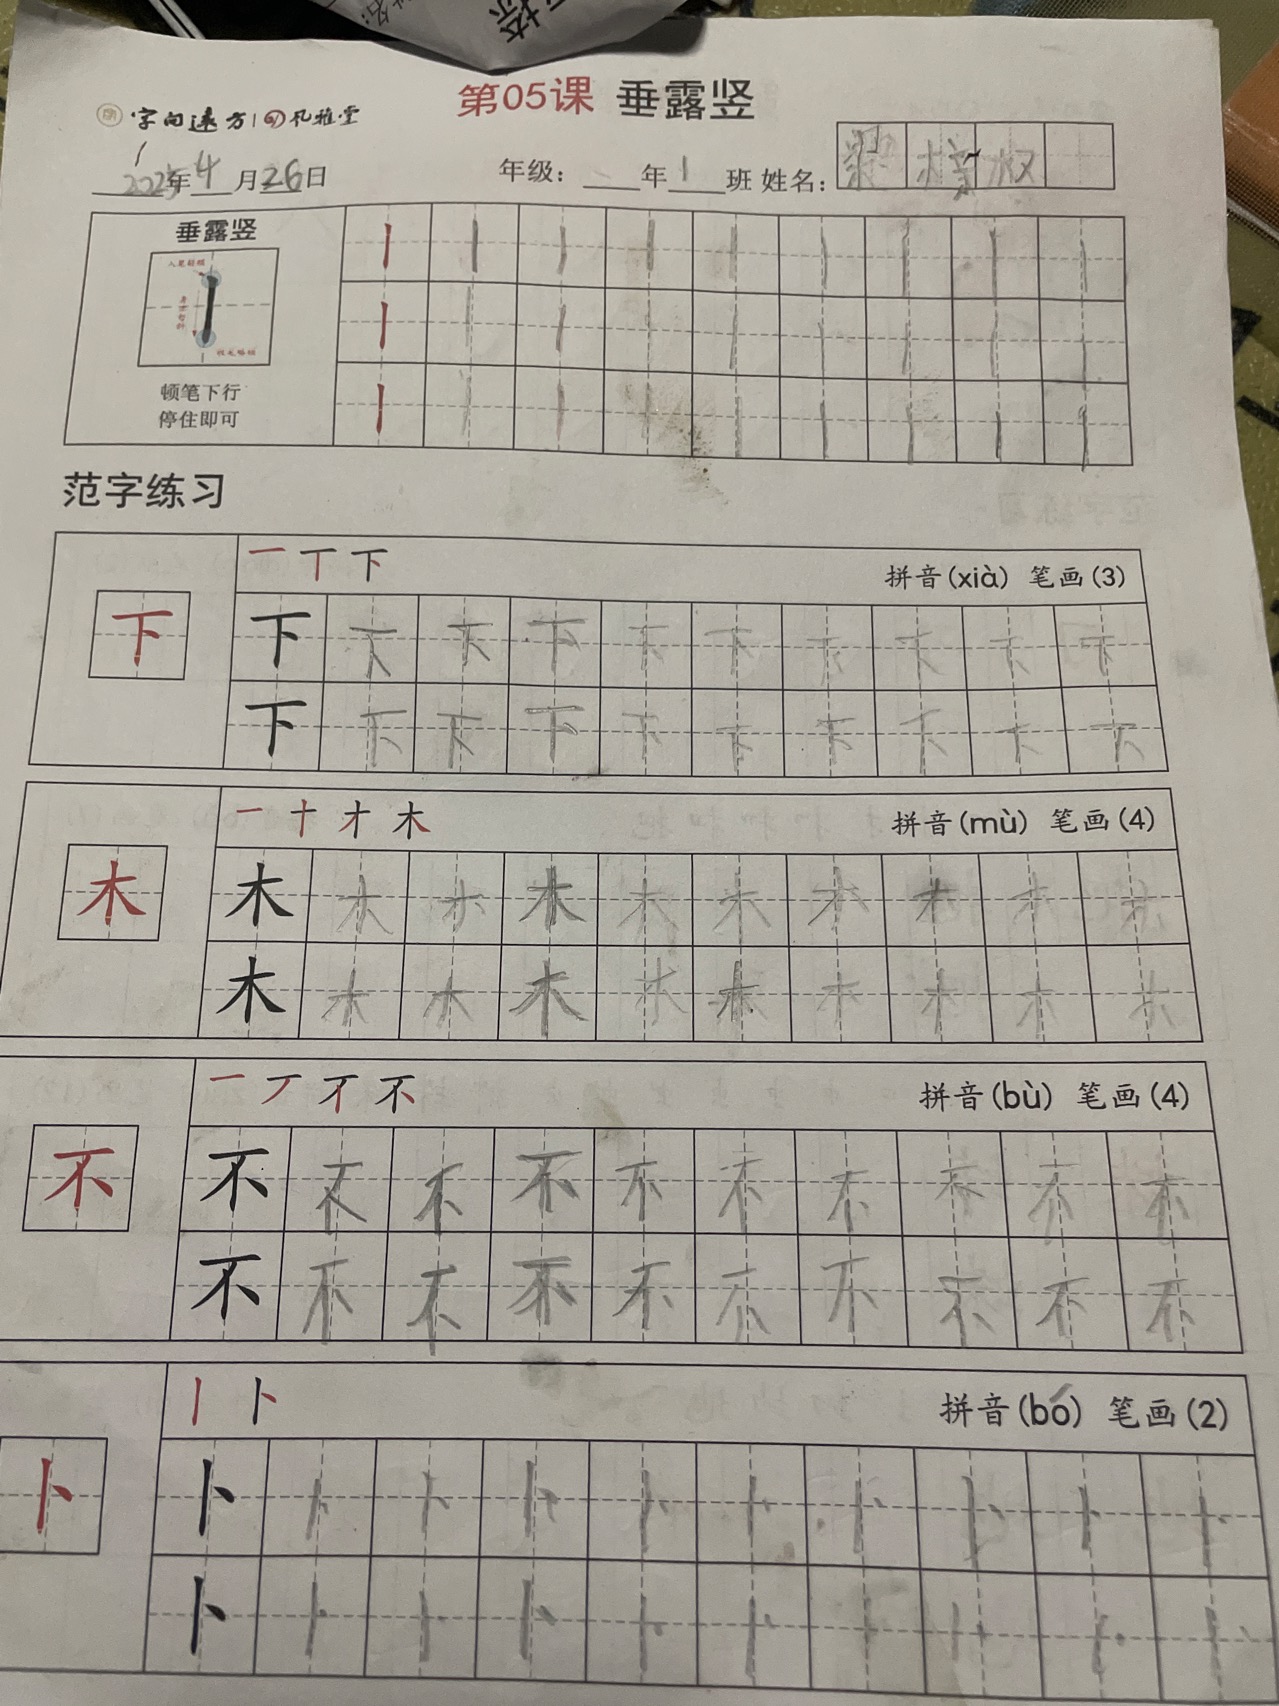 第05课 垂露竖
字向远方 风雅堂
2025年4月26日 年级：年1班 姓名：
垂露竖
顿笔下行
停住即可
范字练习
一 丅 下 拼音(xià) 笔画(3)
下 下 下 下 下 下 下 下 下 下 下
下 下 下 下 下 下 下 下 下 下
一 十 才 木 拼音(mù) 笔画(4)
木 木 木 木 木 木 木 木 木 木 木
木 木 木 木 木 木 木 木 木 木
一 丆 不 拼音(bù) 笔画(4)
不 不 不 不 不 不 不 不 不 不 不
不 不 不 不 不 不 不 不 不 不
丨 卜 拼音(bó) 笔画(2)
卜 卜 卜 卜 卜 卜 卜 卜 卜 卜 卜
卜 卜 卜 卜 卜 卜 卜 卜 卜 卜